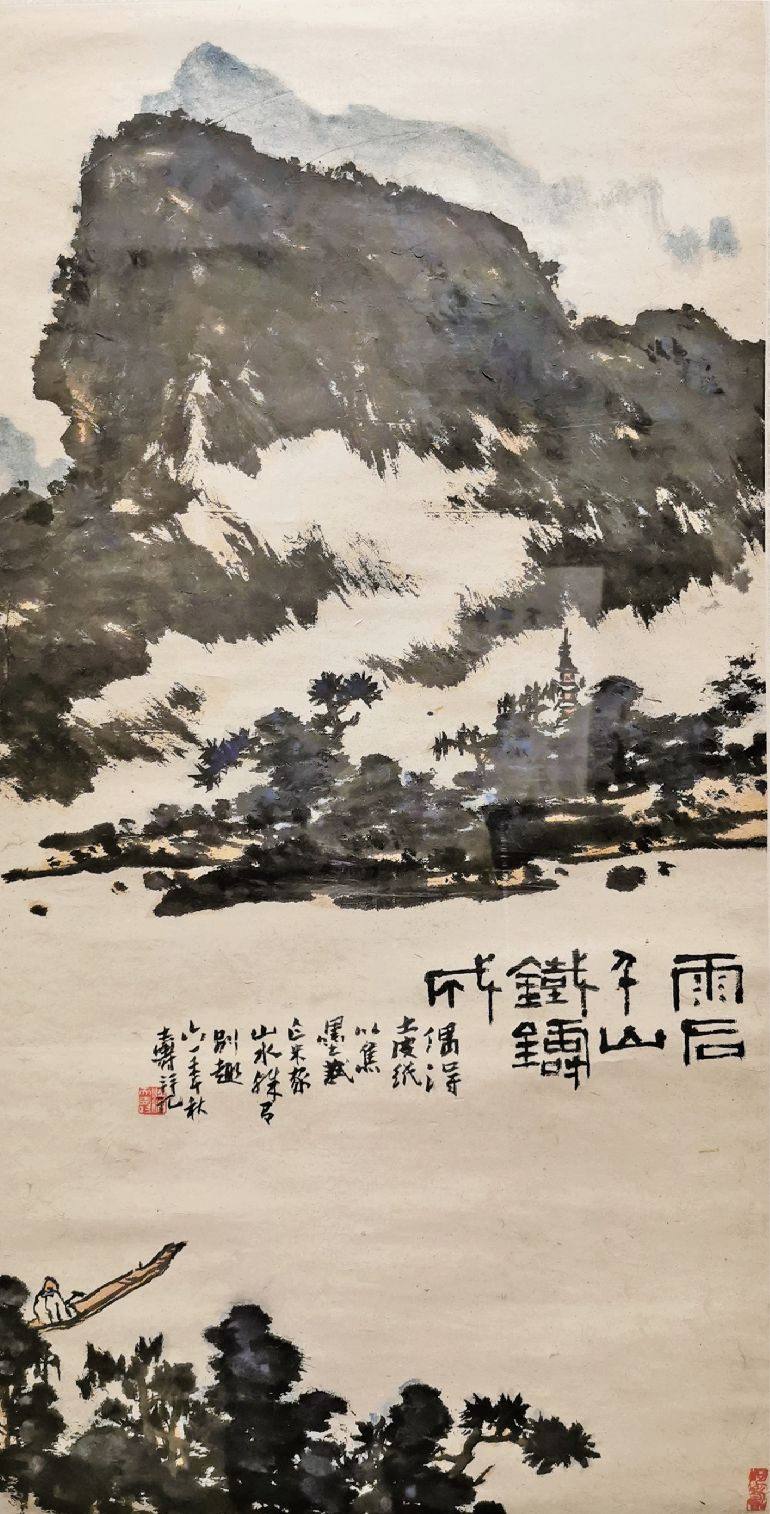 雨后
千山
鐵鑄
成
偶得
土皮紙
以焦
墨
米家
山水殊有
別趣
六一年秋
壽